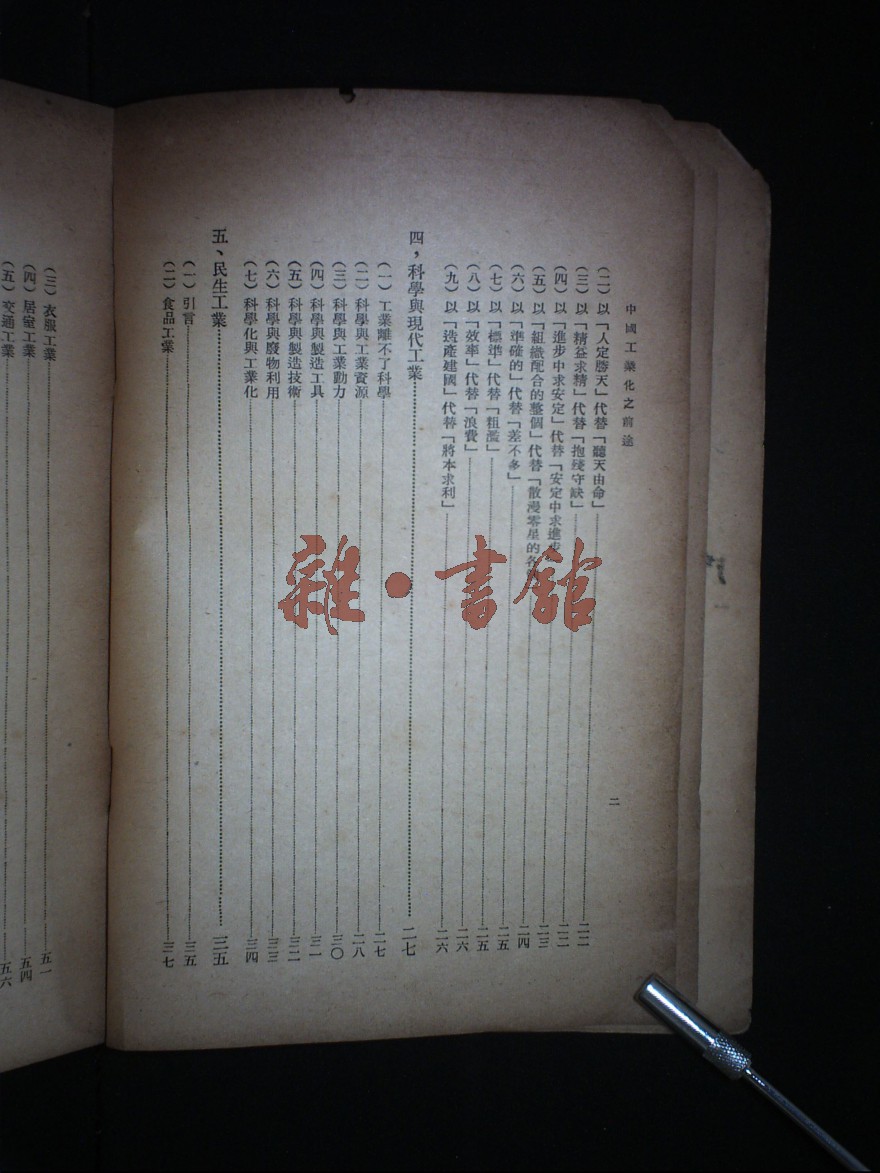 中國工業化之前途
二
(二)以「人定勝天」代替「聽天由命」……二二
(三)以「精益求精」代替「抱殘守缺」……二二
(四)以「進步中求安定」代替「安定中求進步……二二
(五)以「組織配合的整個」代替「散漫零星的各……二三
(六)以「準確的」代替「差不多」……二四
(七)以「標準」代替「粗濫」……二五
(八)以「效率」代替「浪費」……二六
(九)以「造產建國」代替「將本求利」……二六
四,科學與現代工業……二七
(一)工業離不了科學……二七
(二)科學與工業資源……二八
(三)科學與工業動力……三〇
(四)科學與製造工具……三一
(五)科學與製造技術……三二
(六)科學與廢物利用……三三
(七)科學化與工業化……三四
五、民生工業……三五
(一)引言……三五
(二)食品工業……三七
(三)衣服工業……五一
(四)居室工業……五四
(五)交通工業……五六
雜•書館